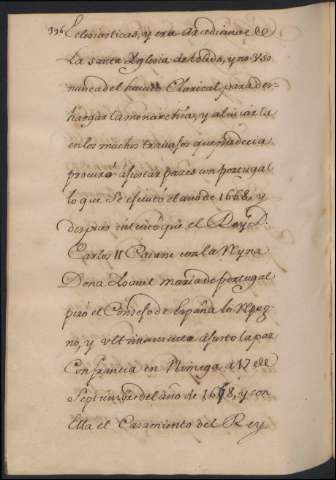 396
Eclesiasticas, y era Arcediano de
la santa Yglesia de toledo, y no Vso
nunca del hauito Clarical para des-
hargar la monarchia, y aliuiar la
en los muchos trauajos que padecia
procuró ajustar pazes con portugal
lo que Se ejecutó el año de 1668, y
despues intentó que el Rey D.
Carlos II Casase con la Ynfa
Dona Ysauel maria de portugal
pero el Consejo de España lo Repug
nó, y vltimamente ajusto la paz
Con francia en Nimega a 17 de
Septiembre del año de 1678, y con
ella el Casamiento del Rey